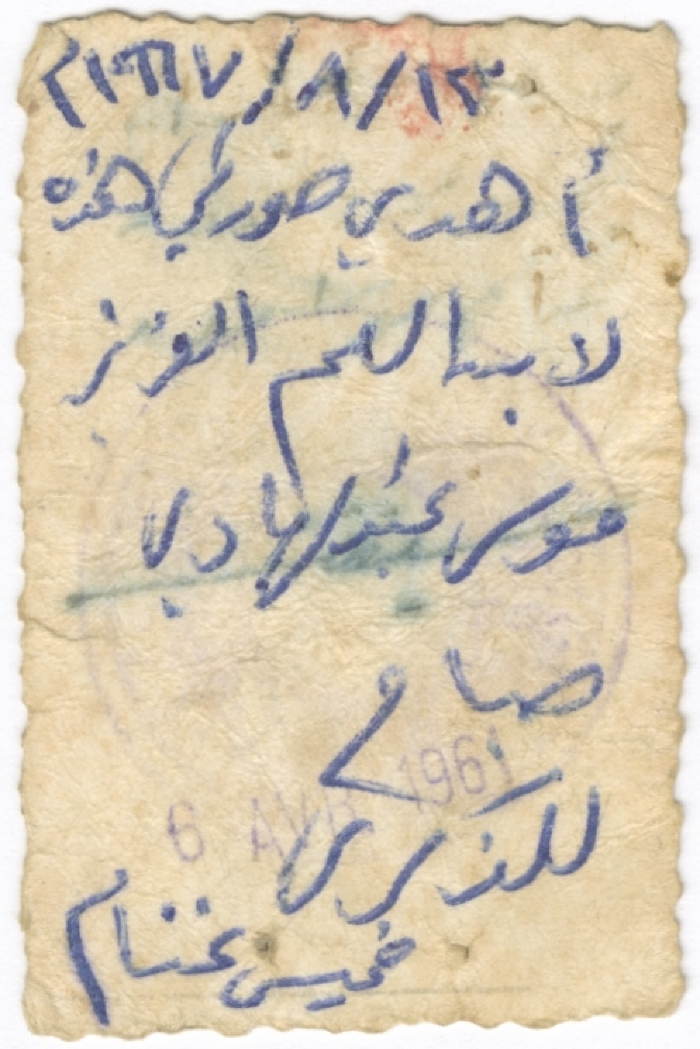 ١٣/٨/١٩٦٧م
أهدي صورتي هذه
لابنا العم العزيز
موسى عبد الهادي
صالح
6 AVR 1961
للذكرى
خميس غنام